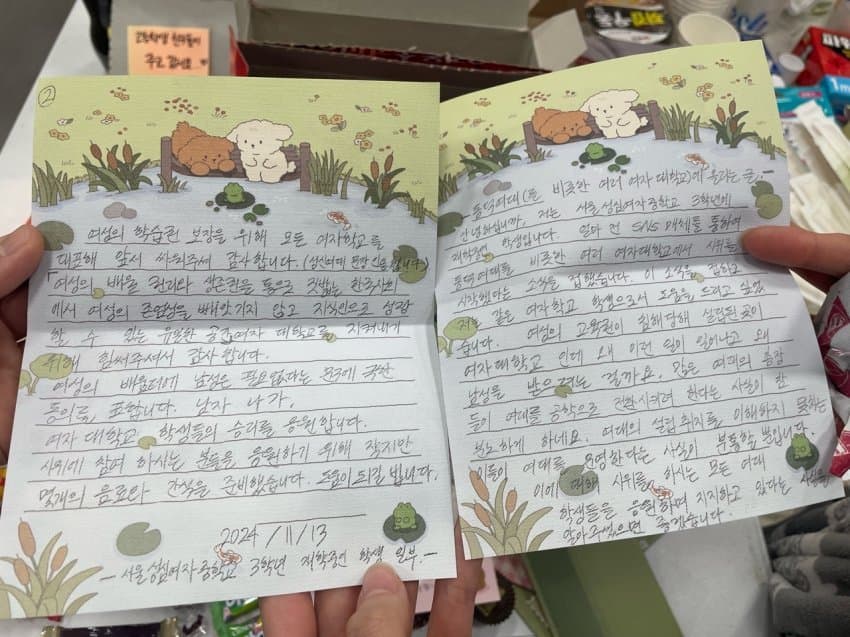 고등학생 친구들이
주고 갔어요
동덕여대(또 비슷한 여러 여자 대학교)에 올리는 글.-
안녕하십니까. 저는 서울성심여자중학교 3학년에
재학중인 학생입니다. 얼마 전 SNS 매체를 통하여
동덕여대를 비롯한 여러 여자대학교에서 시위를
시작했다는 소식을 접했습니다. 이 소식을 접하고
저는 같은 여자학교 학생으로서 도움을 드리고 싶었
습니다. 여성의 교육권이 침해당해 설립된 곳이
여자대학교 인데 왜 이런 일이 일어나고 왜
남성을 받으려는 걸까요. 많은 여대의 총장
들이 여대를 공학으로 전환시키려 한다는 사실이 참
분노하게 하네요. 여대의 설립 취지를 이해하지 못하는
이들이 여대를 운영한다는 사실이 부통할 뿐입니다.
이에 대해 시위를 하시는 모든 여대
학생들을 응원하며 지지하고 있다는 사실을
알아주셨으면 좋겠습니다.
②
여성의 학습권 보장을 위해 모든 여자학교를
대표해 앞서 싸워주셔 감사합니다. (성신여대 문장 인용했습니다)
「여성의 배울 권리와 생존권을 통으로 짓밟는 한국사회
에서 여성의 존엄성을 빼앗기지 않고 지성인으로 성장
할 수 있는 유일한 공간」여자 대학교를 지켜내기
위해 힘써주셔서 감사합니다.
여성의 배움터에 남성은 필요없다는 문구에 극한
동의를 표합니다. 남자 나가.
여자 대학교 학생들의 승리를 응원합니다.
시위에 참여 하시는 분들을 응원하기 위해 작지만
몇개의 음료와 간식을 준비했습니다. 도움이 되길 빕니다.
2024/11/13
- 서울성심여자중학교 3학년 재학중인 학생 일부.-